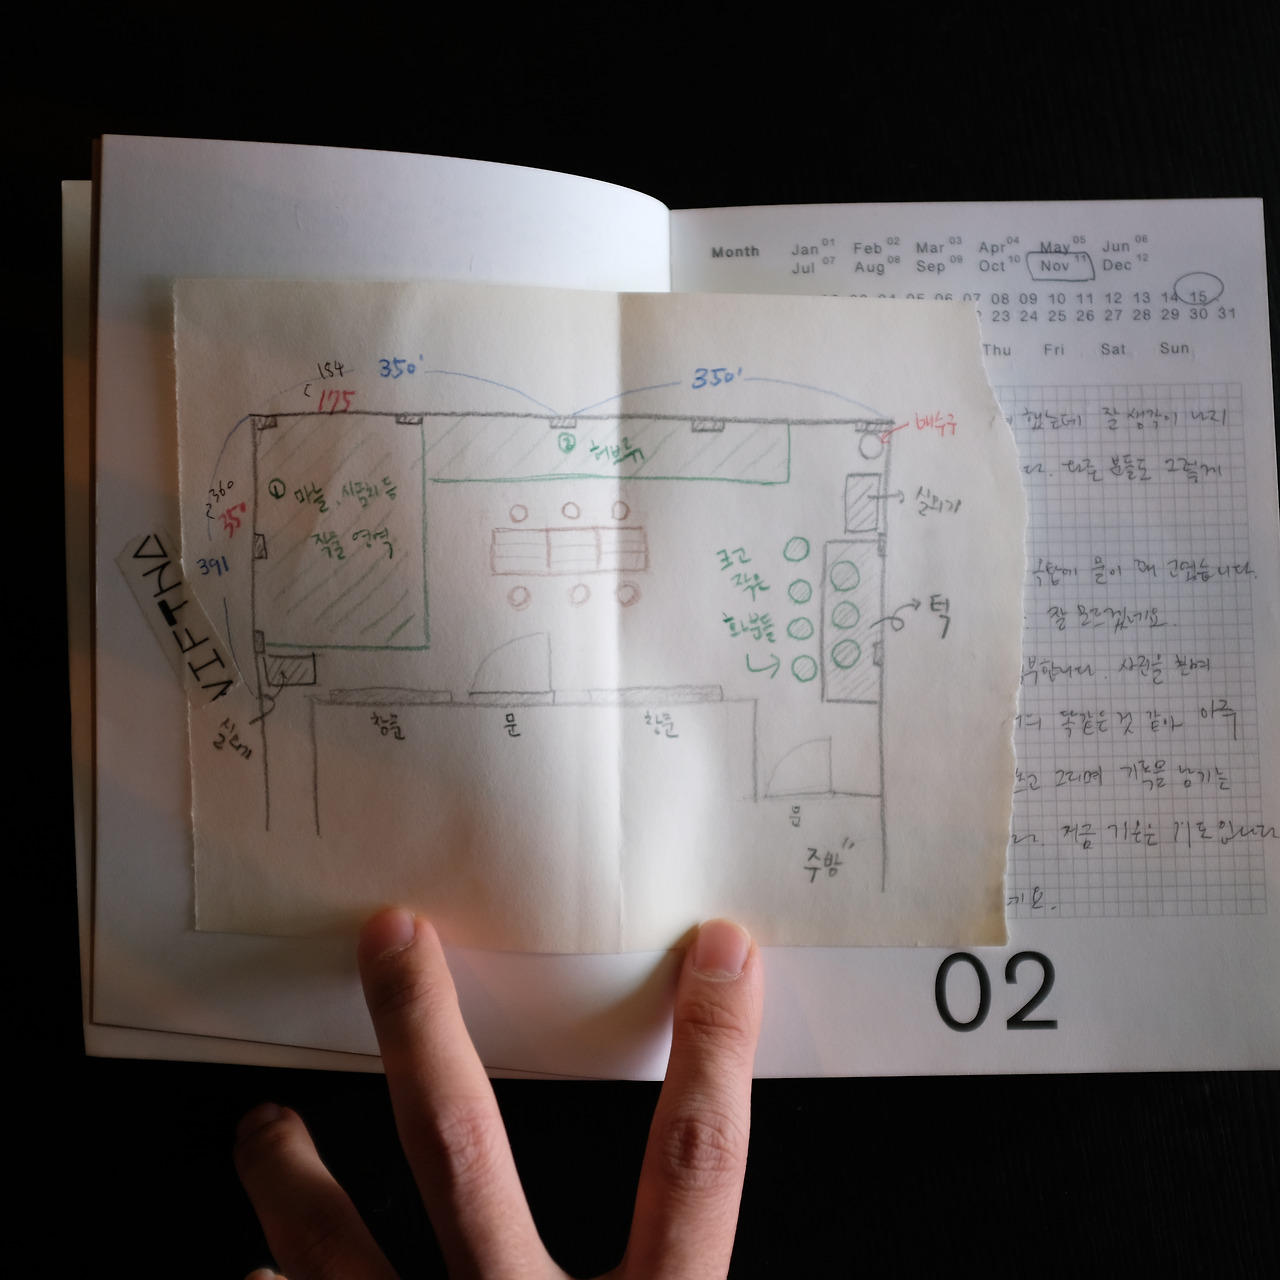 Month Jan 01 Feb 02 Mar 03 Apr 04 May 05 Jun 06
Jul 07 Aug 08 Sep 09 Oct 10 Nov 11 Dec 12
07 08 09 10 11 12 13 14 15
23 24 25 26 27 28 29 30 31
Thu Fri Sat Sun
184 350' 350'
175
배수구
② 허브류
360
350
391
① 마늘, 시금치 등
작물 영역
실외기
크고
작은
화분들
턱
실외기
창문 문 창문
문
주방
했는데 잘 생각이 나지
다. 다른 분들도 그렇게
물이 꽤 고였습니다.
잘 모르겠네요.
사진을 찍어
똑같은 것 같아 아주
그리며 기록을 남기는
지금 기온은 11도입니다
네요.
02